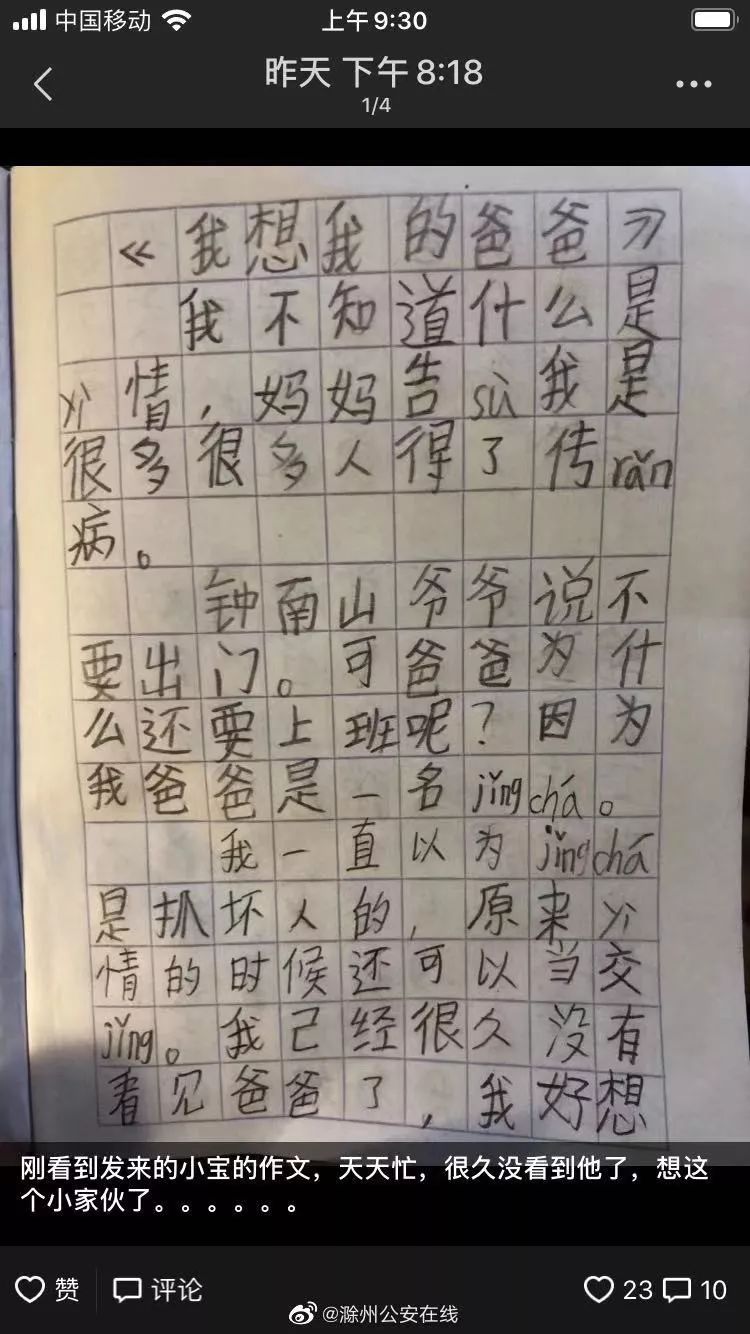 中国移动 上午9:30
昨天 下午8:18
1/4
《我想我的爸爸》
我不知道什么是
yi情，妈妈告sù我是
很多很多人得了传rǎn
病。
钟南山爷爷说不
要出门。可爸爸为什
么还要上班呢？因为
我爸爸是一名jǐngchá。
我一直以为jǐngchá
是抓坏人的，原来yi
情的时候还可以当交
jǐng。我己经很久没有
看见爸爸了，我好想
刚看到发来的小宝的作文，天天忙，很久没看到他了，想这
个小家伙了。。。。。。
赞 评论 23 10
@滁州公安在线